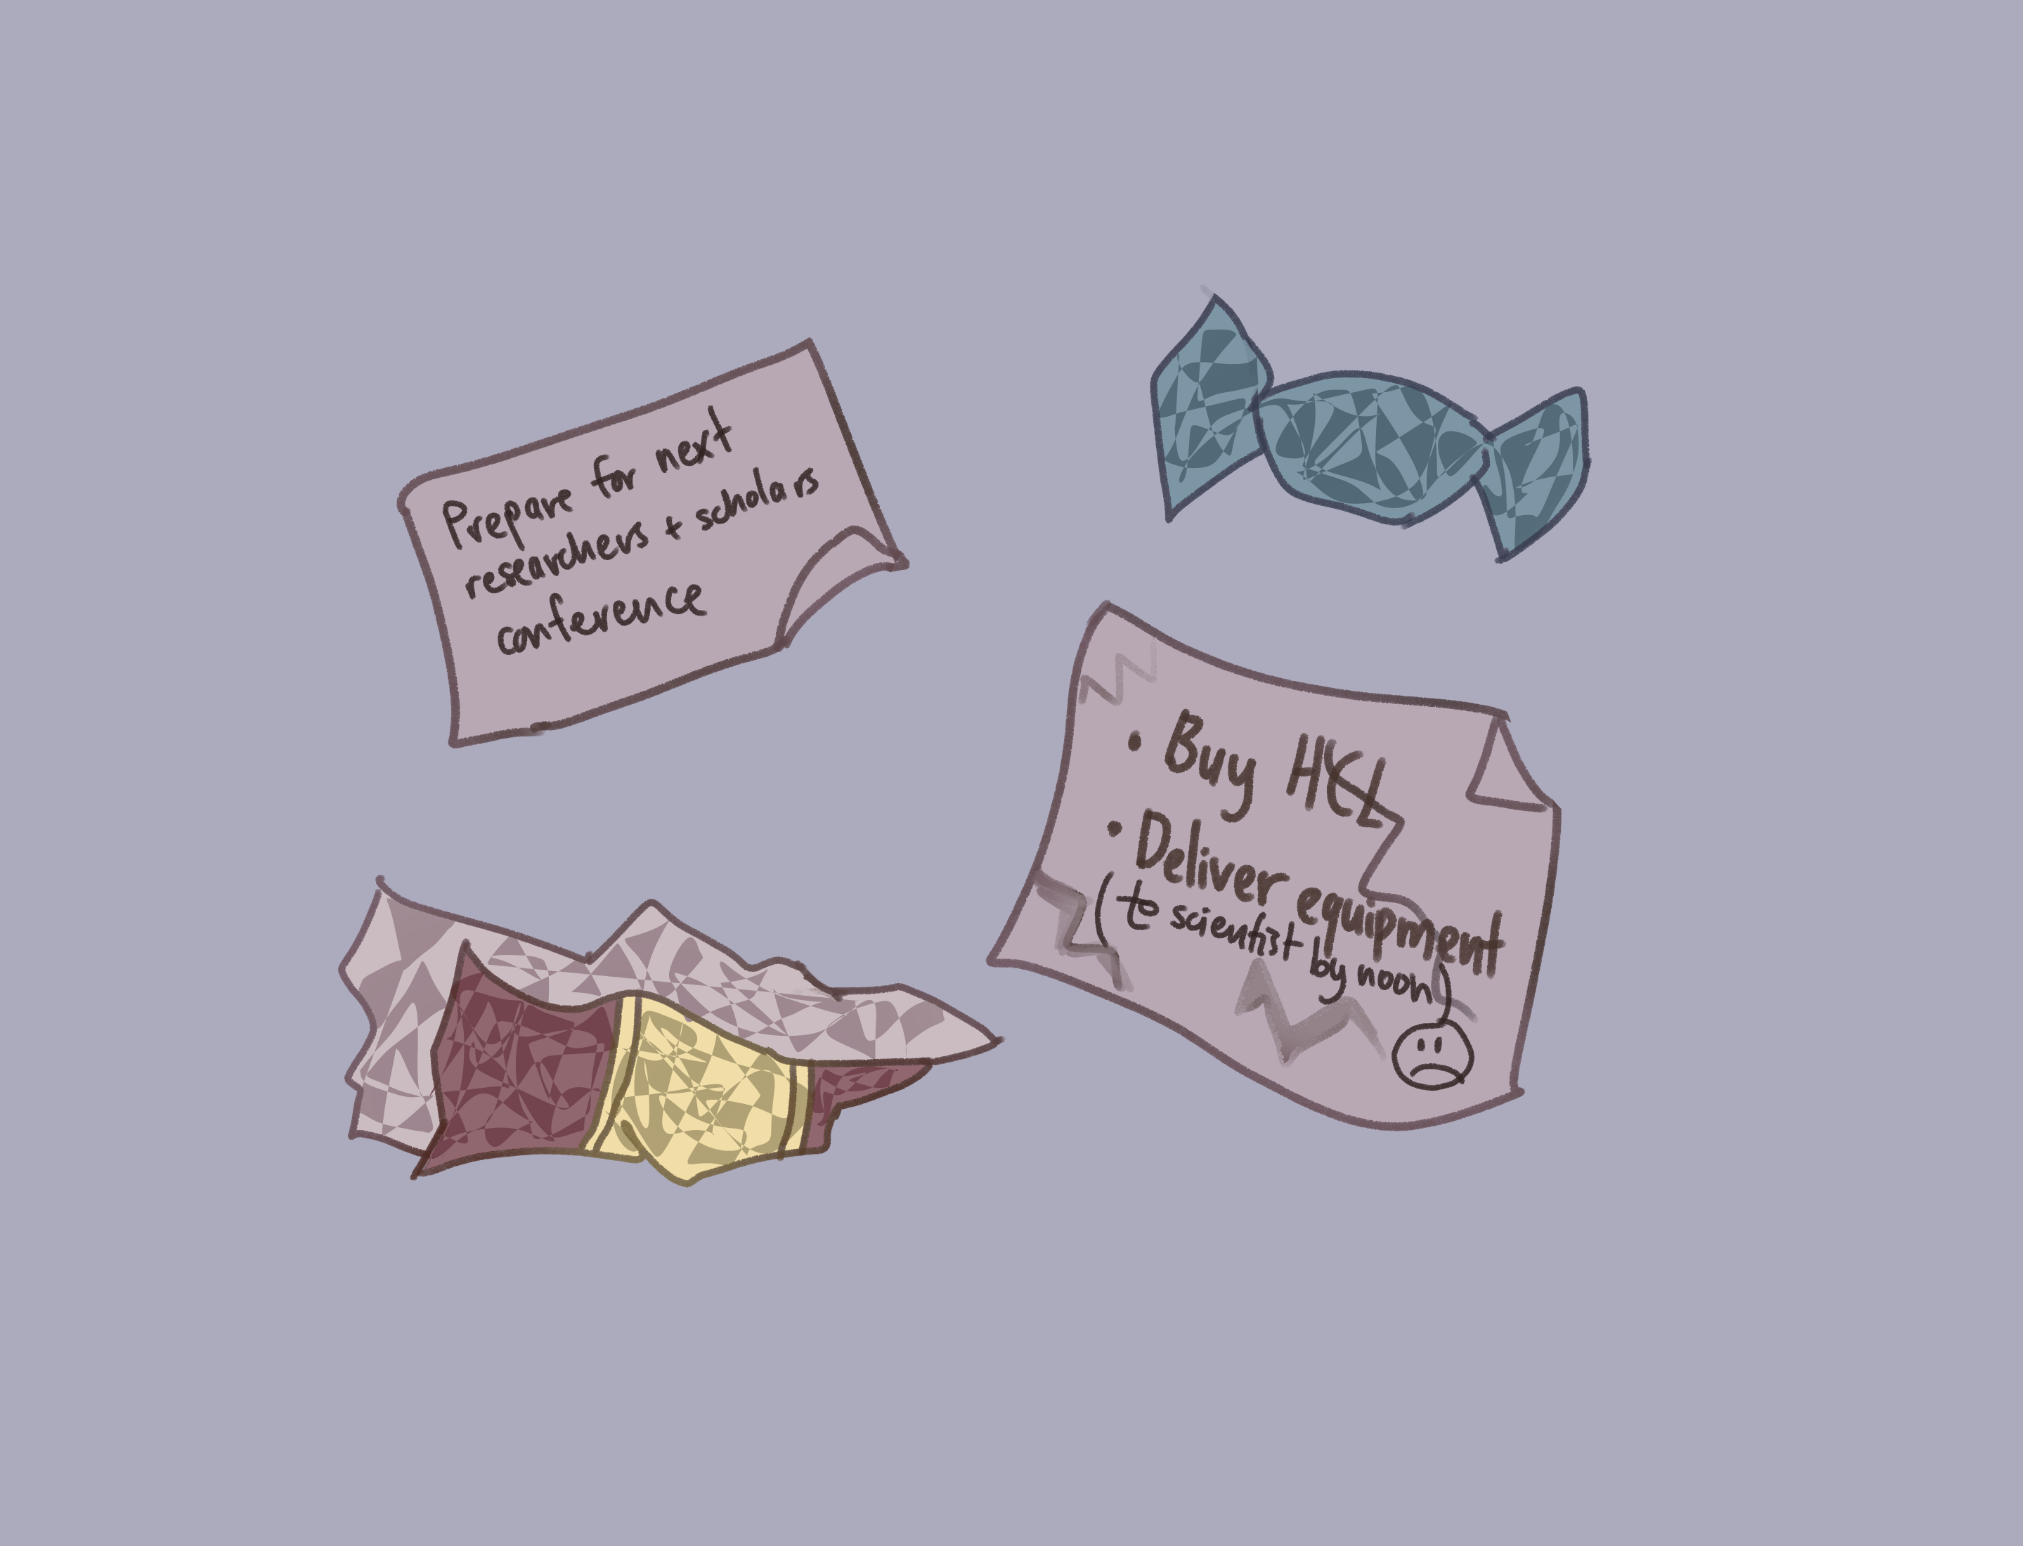 Prepare for next
researchers + scholars
conference
• Buy HCL
• Deliver equipment
(to scientist by noon)